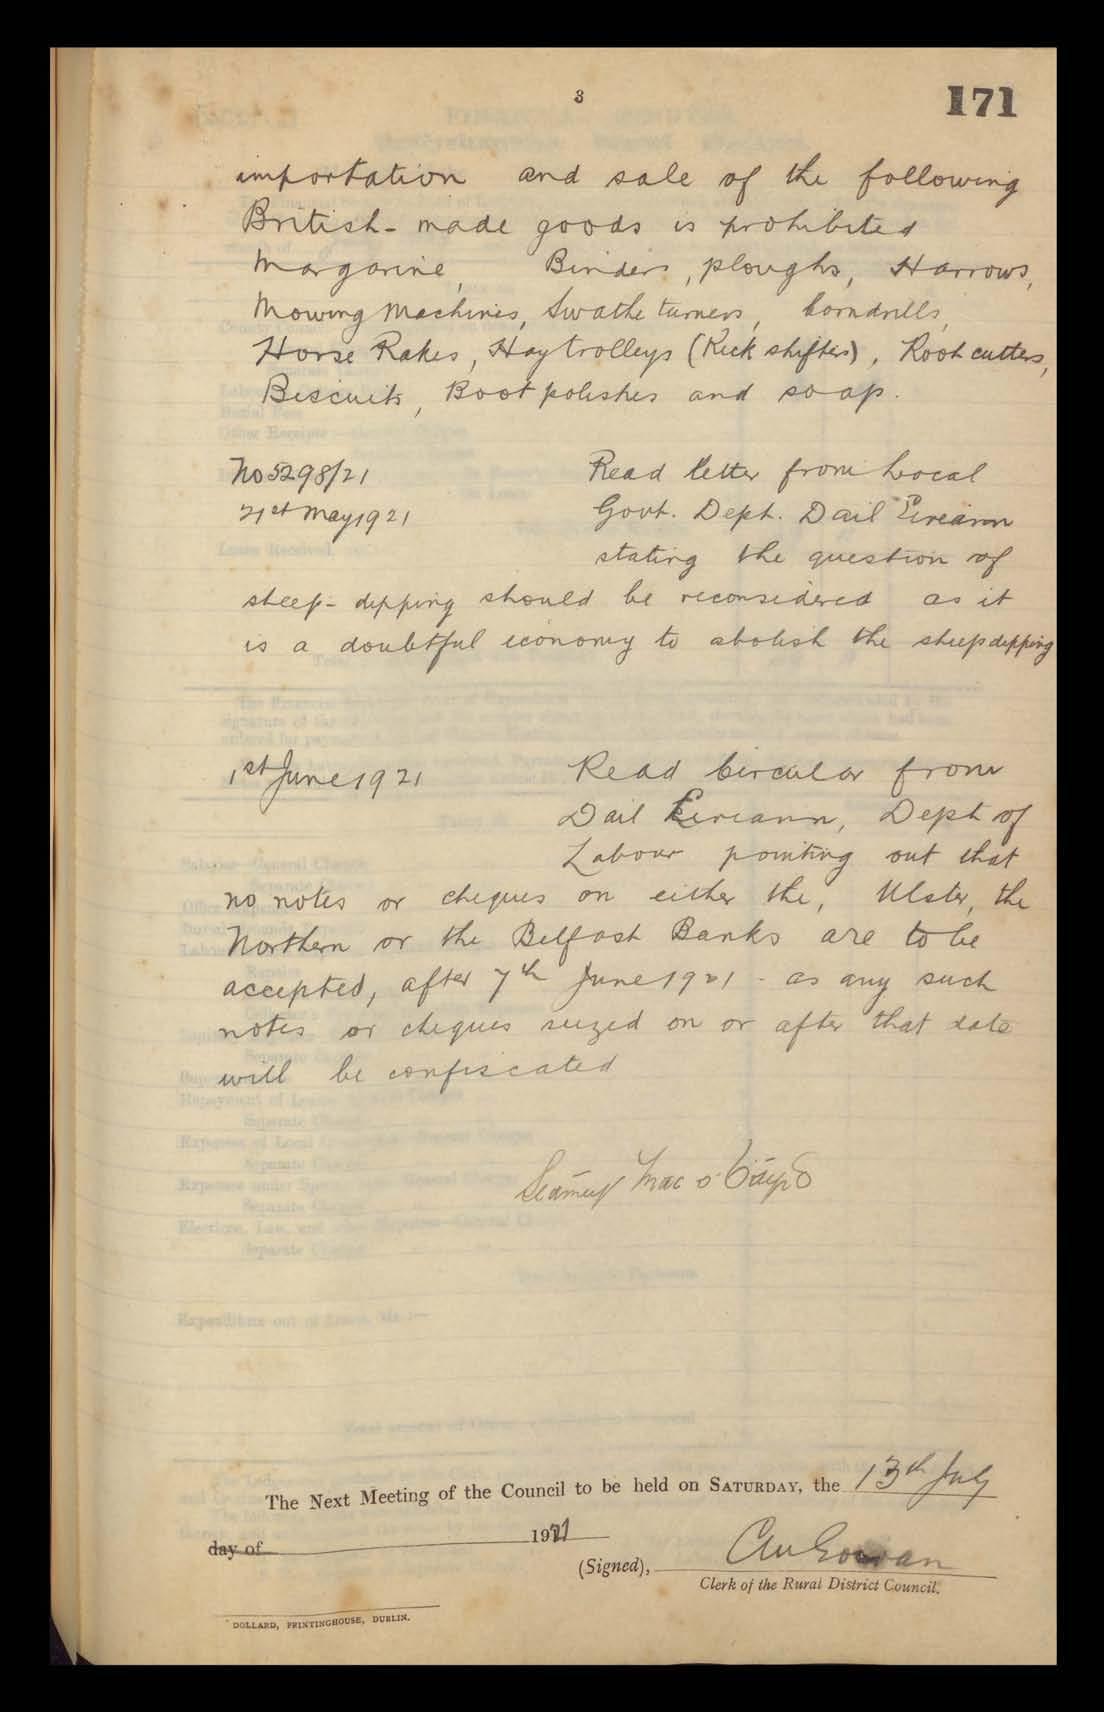 3
171
importation and sale of the following
British-made goods is prohibited
Margarine, Binders, ploughs, Harrows,
Mowing Machines, Swathe turners, Corndrills,
Horse Rakes, Hay trolleys (Rick shifters), Root cutters,
Biscuits, Boot polishes and soap.
No 5298/21 Read letter from Local
21st May 1921 Govt. Dept. Dail Eireann
stating the question of
sheep-dipping should be reconsidered as it
is a doubtful economy to abolish the sheepdipping
1st June 1921 Read Circular from
Dail Eireann, Dept of
Labour pointing out that
no notes or cheques on either the, Ulster, the
Northern or the Belfast Banks are to be
accepted, after 7th June 1921 - as any such
notes or cheques seized on or after that date
will be confiscated
Séamus Mac
The Next Meeting of the Council to be held on SATURDAY, the 13th July
day of 1921
(Signed),
Clerk of the Rural District Council.
DOLLARD, PRINTINGHOUSE, DUBLIN.